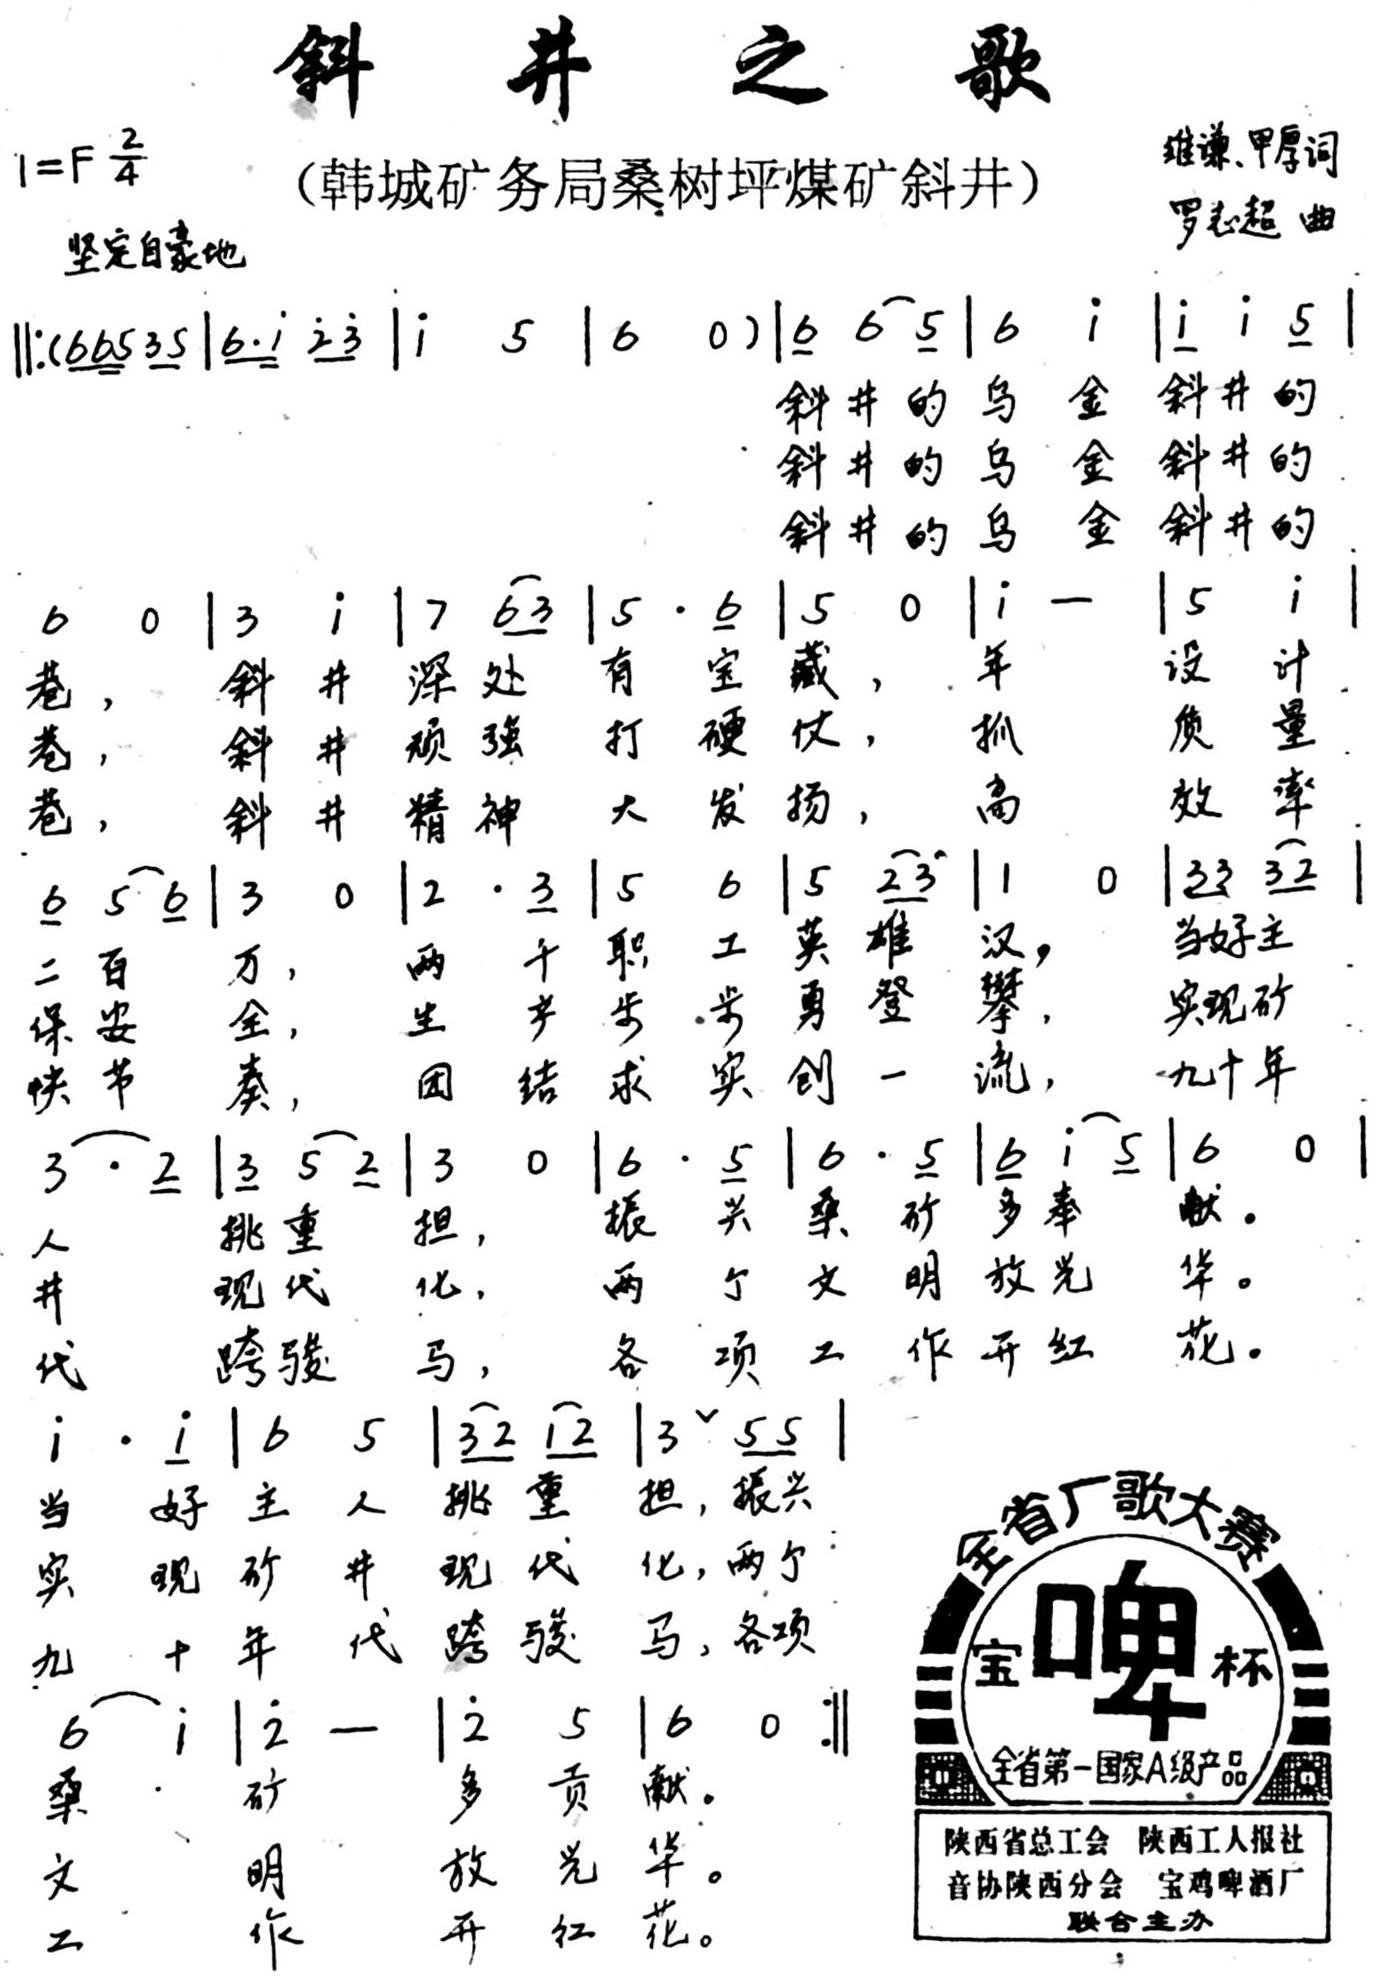 斜井之歌
1=F 2/4
(韩城矿务局桑树坪煤矿斜井)
维谦、甲厚词
罗志超 曲
坚定自豪地
‖:(665 35|6·i̇ 2̇3̇|i̇ 5|6 0)|6 6 5|6 i̇|i̇ i̇ 5|
斜井的乌金斜井的
斜井的乌金斜井的
斜井的乌金斜井的
6 0|3 i̇|7 63|5·6|5 0|i̇ —|5 i̇|
巷,斜井深处有宝藏,年设计
巷,斜井顽强打硬仗,抓质量
巷,斜井精神大发扬,高效率
6 5 6|3 0|2·3|5 6|5 23|1 0|33 32|
二百万,两千职工英雄汉,当好主
保安全,生产步步勇登攀,实现矿
快节奏,团结求实创一流,九十年
3·2|3 5 2|3 0|6·5|6·5|6 i̇ 5|6 0|
人挑重担,振兴桑矿多奉献。
井现代化,两个文明放光华。
代跨骏马,各项工作开红花。
i̇·i̇|6 5|32 12|3ˇ55|
当好主人挑重担,振兴
实现矿井现代化,两个
九十年代跨骏马,各项
6 i̇|2̇ —|2̇ 5|6 0:‖
桑矿多贡献。
文明放光华。
工作开红花。
全省厂歌大赛
宝啤杯
全省第一国家A级产品
陕西省总工会 陕西工人报社
音协陕西分会 宝鸡啤酒厂
联合主办